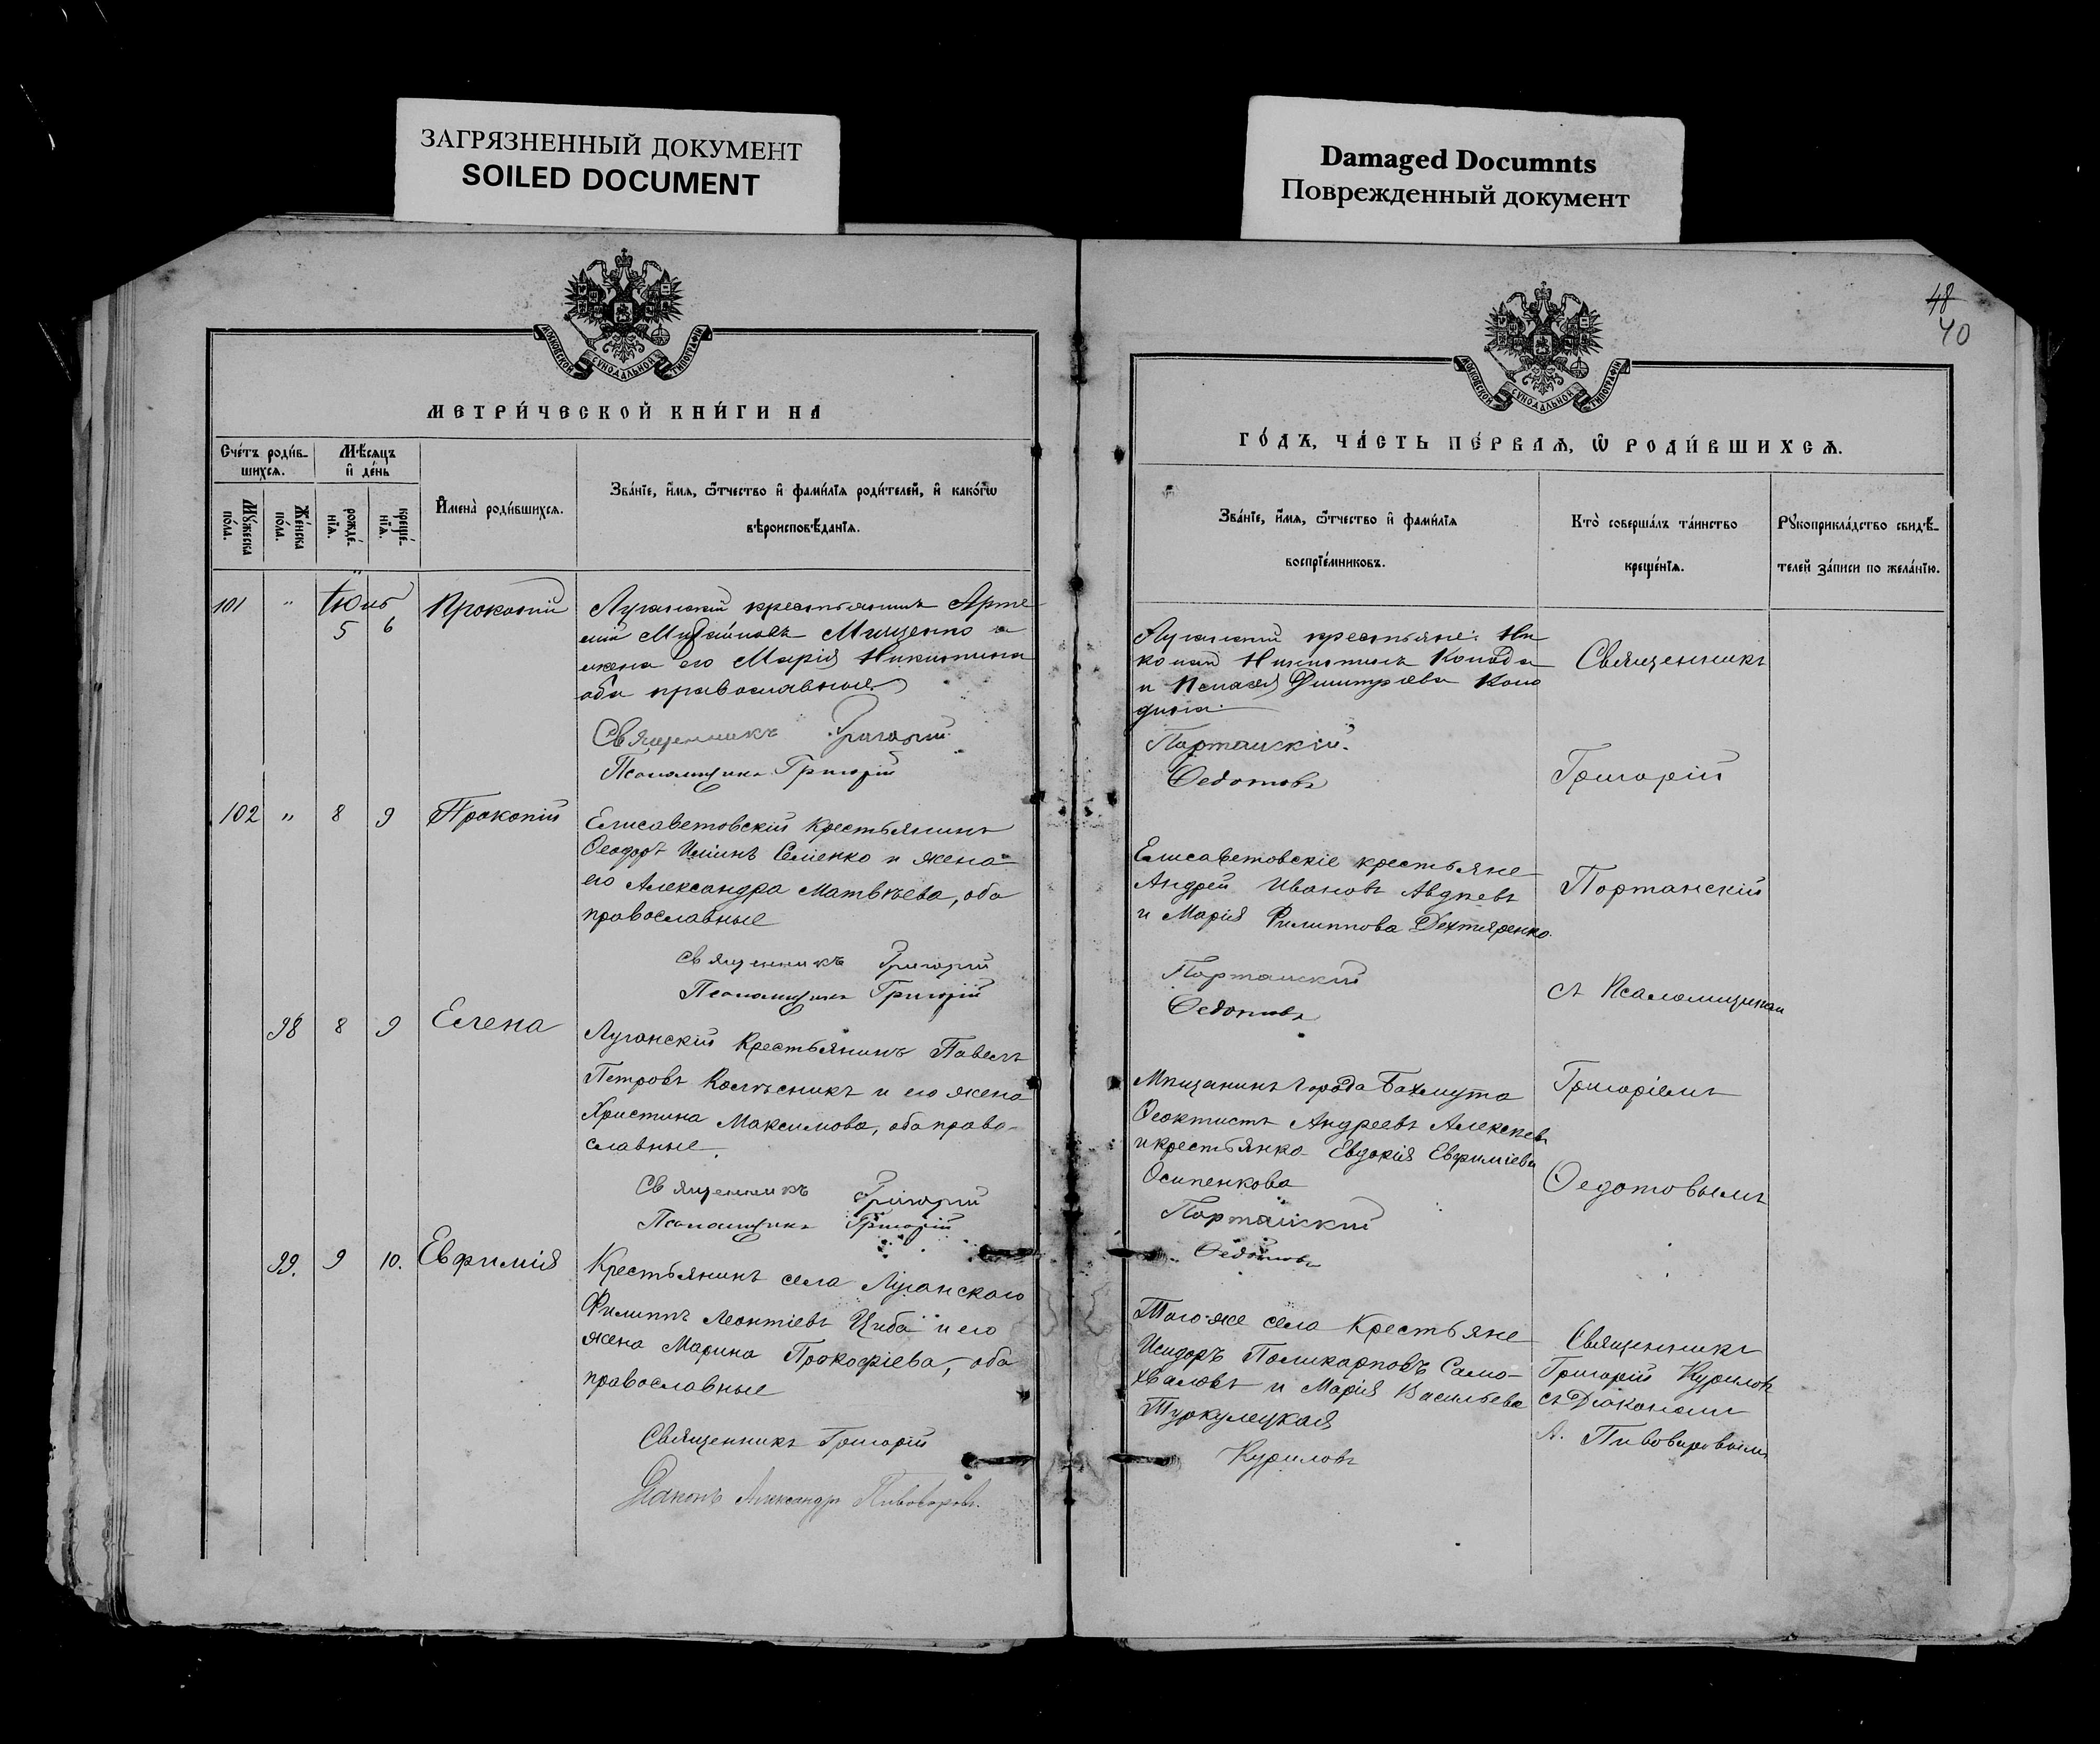 ЗАГРЯЗНЕННЫЙ ДОКУМЕНТ
SOILED DOCUMENT
Damaged Documnts
Поврежденный документ
МОСКОВСКОЙ СѴНОДАЛЬНОЙ ТИПОГРАФІИ
МЕТРИ́ЧЕСКОЙ КНИ́ГИ НА
Сче́тъ роди́в-
шихсѧ.
Мѣ́сѧцъ
и҆ де́нь
Мꙋ́жеска
по́ла.
Же́нска
по́ла.
рожде́-
нїѧ.
креще́-
нїѧ.
И҆мена̀ роди́вшихсѧ.
Зва́нїе, и҆́мѧ, ѻ҆́тчество и҆ фами́лїѧ роди́телей, и҆ како́гѡ
вѣроисповѣ́данїѧ.
101 " Іюнь
5 6
Прокопій
Луганскій крестьянинъ Арте
мій Мищенко и
жена его Марія Никитина
оба православные
Священникъ Григорій
Псаломщикъ Григорій
102 " 8 9 Прокопій
Елисаветовскій крестьянинъ
Ѳеодоръ Иліинъ Семенко и жена
его Александра Матвѣева, оба
православные
Священникъ Григорій
Псаломщикъ Григорій
98 8 9 Елена
Луганскій Крестьянинъ Павелъ
Петровъ Колѣсникъ и его жена
Христина Максимова, оба право-
славные.
Священникъ Григорій
Псаломщикъ Григорій
99. 9 10. Евфимія
Крестьянинъ села Луганскаго
Филиппъ Леонтіевъ Циба и его
жена Марина Прокофіева, оба
православные
Священникъ Григорій
Діаконъ Александръ Пивоваровъ.
48
40
МОСКОВСКОЙ СѴНОДАЛЬНОЙ ТИПОГРАФІИ
ГО́ДЪ, ЧА́СТЬ ПЕ́РВАѦ, Ѡ҆ РОДИ́ВШИХСѦ.
Зва́нїе, и҆́мѧ, ѻ҆́тчество и҆ фами́лїѧ
воспрїе́мниковъ.
Кто̀ соверша́лъ та́инство
креще́нїѧ.
Рꙋкоприкла́дство свидѣ́-
телей за́писи по жела́нїю.
Луганскіи крестьяне: Ни
колай Никитинъ
и Димитріева
Портанскій.
Ѳедотовъ
Священникъ
Григорій
Елисаветовскіе крестьяне
Андрей Ивановъ Авдѣевъ
и Марія Филиппова Дехтяренко.
Портанскій
Ѳедотовъ
Портанскій
съ Псаломщикомъ
Мѣщанинъ города Бахмута
Ѳеоктистъ Андреевъ Алексѣевъ
и крестьянка Евдокія Евфиміева
Осипенкова
Портанскій
Ѳедотовъ
Григоріемъ
Ѳедотовымъ
Того-же села Крестьяне
Исидоръ Поликарповъ Само-
хваловъ и Марія Васильева
Туркулецкая
Куриловъ
Священникъ
Григорій Куриловъ
съ Діакономъ
А. Пивоваровымъ